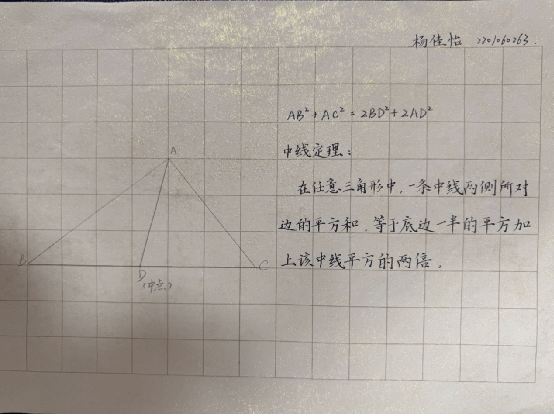 杨佳怡 2201060263.
AB²+AC²=2BD²+2AD²
中线定理:
在任意三角形中,一条中线两侧所对
边的平方和,等于底边一半的平方加
上该中线平方的两倍。
A
B
D
C
(中点)